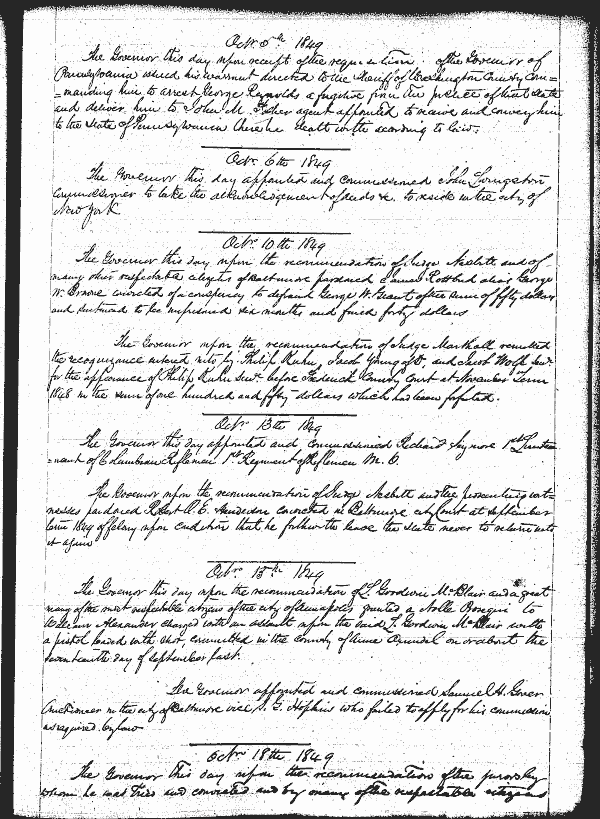 Octr. 5th 1849
The Governor this day upon receipt of the requisition of the Governor of
Pennsylvania issued his warrant directed to the Sheriff of Washington County Com=
=manding him to arrest George Reynolds a fugitive from the justice of that State
and deliver him to John M. Fisher agent appointed to receive and convey him
to the State of Pennsylvania there be dealt with according to law.
Octr. 6th 1849
The Governor this day appointed and commissioned John Livingston
Commissioner to take the acknowledgement of deeds &c. to reside in the city of
New York
Octr. 10th 1849
The Governor this day upon the recommendation of Judge Nesbitt and of
many other respectable citizens of Baltimore pardoned James alias George
W. convicted of a conspiracy to defraud George W. Grant of the sum of fifty dollars
and sentenced to be imprisoned six months and fined forty dollars
The Governor upon the recommendation of Judge Marshall remitted
the recognizance entered into by Philip Kuhn, Jacob Young of D, and Jacob Wolfe Senr.
for the appearance of Philip Kuhn Senr. before Frederick County Court at November Term
1848 in the sum of one hundred and fifty dollars which had been forfeited.
Octr. 13th 1849
The Governor this day appointed and commissioned Richard Seymore 1st Lieuten
=nant of Columbian Riflemen 1st Regiment of Riflemen M. O.
The Governor upon the recommendation of Judge Nesbitt and the prosecuting wit=
nesses pardoned Robert A. E. Anderson convicted in Baltimore city Court at September
term 1849 of felony upon condition that he forthwith leave the State never to return into
it again
Octr. 15th 1849
The Governor this day upon the recommendation of T. Goodwin McBlair and a great
many of the most respectable citizens of the city of Annapolis granted a Nolle Prosequi to
William Alexander charged with an assault upon the said T. Goodwin McBlair with
a pistol loaded with shot, committed in the county of Anne Arundel on or about the
seventeenth day of September last.
The Governor appointed and commissioned Samuel H. Gover
Auctioneer in the city of Baltimore vice S. G. Hopkins who failed to apply for his commission
as required by law
Octr. 18th 1849
The Governor this day upon the recommendation of the jurors by
whom he was tried and convicted and by many of the respectable citizens